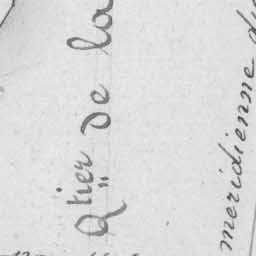 Qtier de la
meridienne du